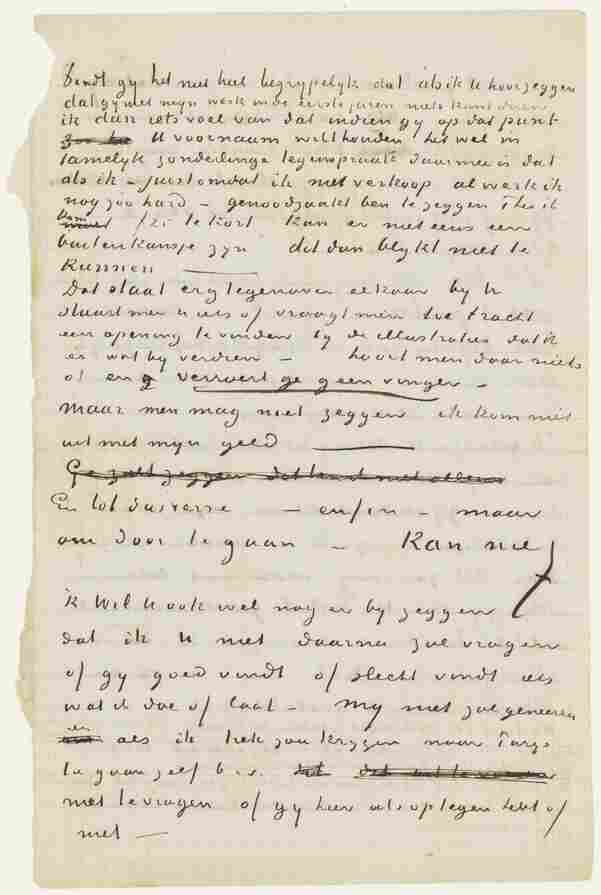 Vindt gy het niet heel begrypelyk dat als ik U hoor zeggen
dat gy met myn werk in de eerste jaren niets kunt doen
ik dan iets voel van dat indien gy op dat punt
U voornaam wilt houden het wel in
tamelyk zonderlinge tegenspraak daarmee is dat
als ik – juist omdat ik niet verkoop al werk ik
nog zoo hard – genoodzaakt ben te zeggen Theo ik
kom /25 te kort kan er niet eens een
buitenkansje zyn dit dan blykt niet te
kunnen
Dat staat erg tegenover elkaar by U
stuurt men U iets of vraagt men toe tracht
een opening te vinden by de illustraties dat ik
er wat by verdien – hoort men daar niets
of en verroert ge geen vinger –
maar men mag niet zeggen ik kom niet
uit met myn geld
En tot dusverre – enfin – maar
om door te gaan – kan niet
ik wil U ook wel nog er by zeggen
dat ik U niet daarna zal vragen
of gy goed vindt of slecht vindt iets
wat ik doe of laat – my niet zal geneeren
en als ik trek zou krygen naar Parys
te gaan zelf b.v.
niet te vragen of gy hier iets op tegen hebt of
niet –